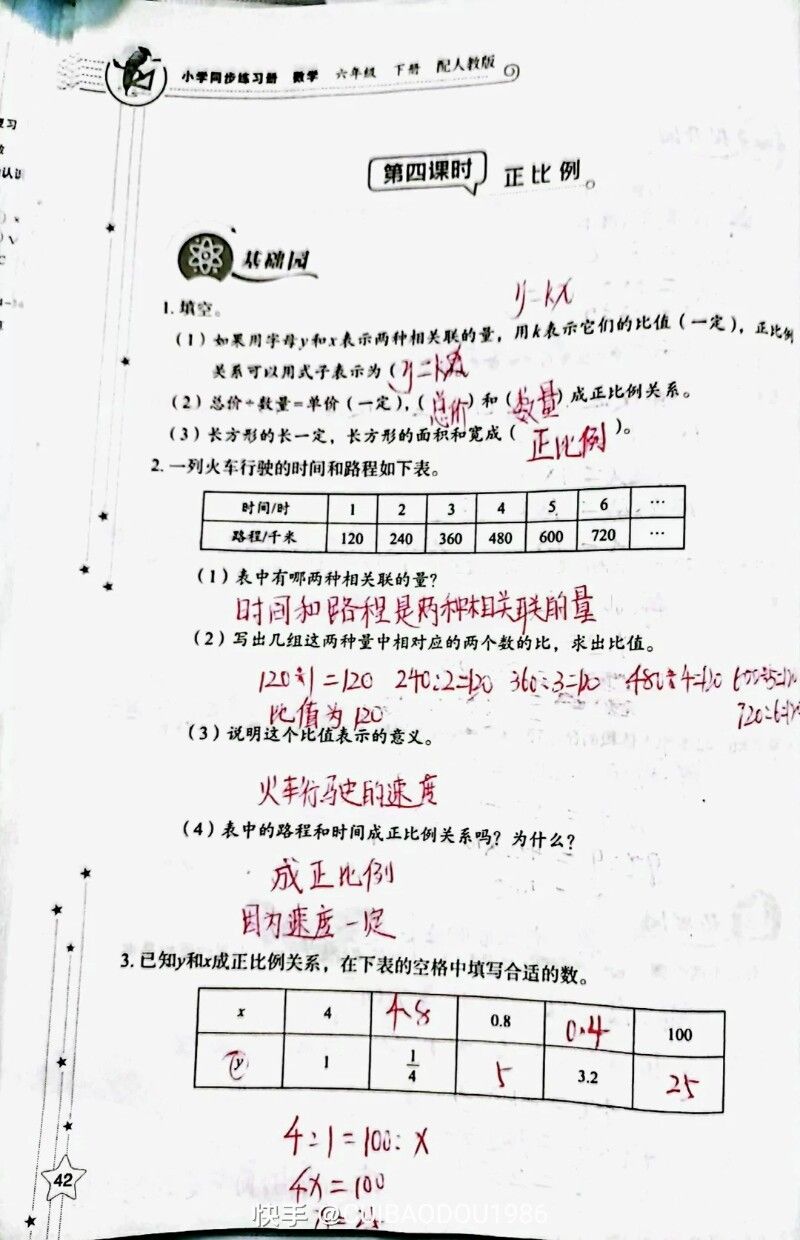 小学同步练习册 数学 六年级 下册 配人教版
第四课时 正比例
基础园
y=kx
1. 填空。
(1) 如果用字母y和x表示两种相关联的量，用k表示它们的比值（一定），正比例
关系可以用式子表示为（y=kx
(2) 总价÷数量=单价（一定），（总价）和（数量）成正比例关系。
(3) 长方形的长一定，长方形的面积和宽成（正比例）。
2. 一列火车行驶的时间和路程如下表。
时间/时 1 2 3 4 5 6 …
路程/千米 120 240 360 480 600 720 …
(1) 表中有哪两种相关联的量？
时间和路程是两种相关联的量
(2) 写出几组这两种量中相对应的两个数的比，求出比值。
120:1=120 240:2=120 360:3=120 480:4=120 600:5=120
720:6=120
比值为120
(3) 说明这个比值表示的意义。
火车行驶的速度
(4) 表中的路程和时间成正比例关系吗？为什么？
成正比例
因为速度一定
3. 已知y和x成正比例关系，在下表的空格中填写合适的数。
x 4 0.8 0.4 100
y 1 1/4 5 3.2 25
4:1=100:x
4x=100
42
快手 @CUIBAODOU1986